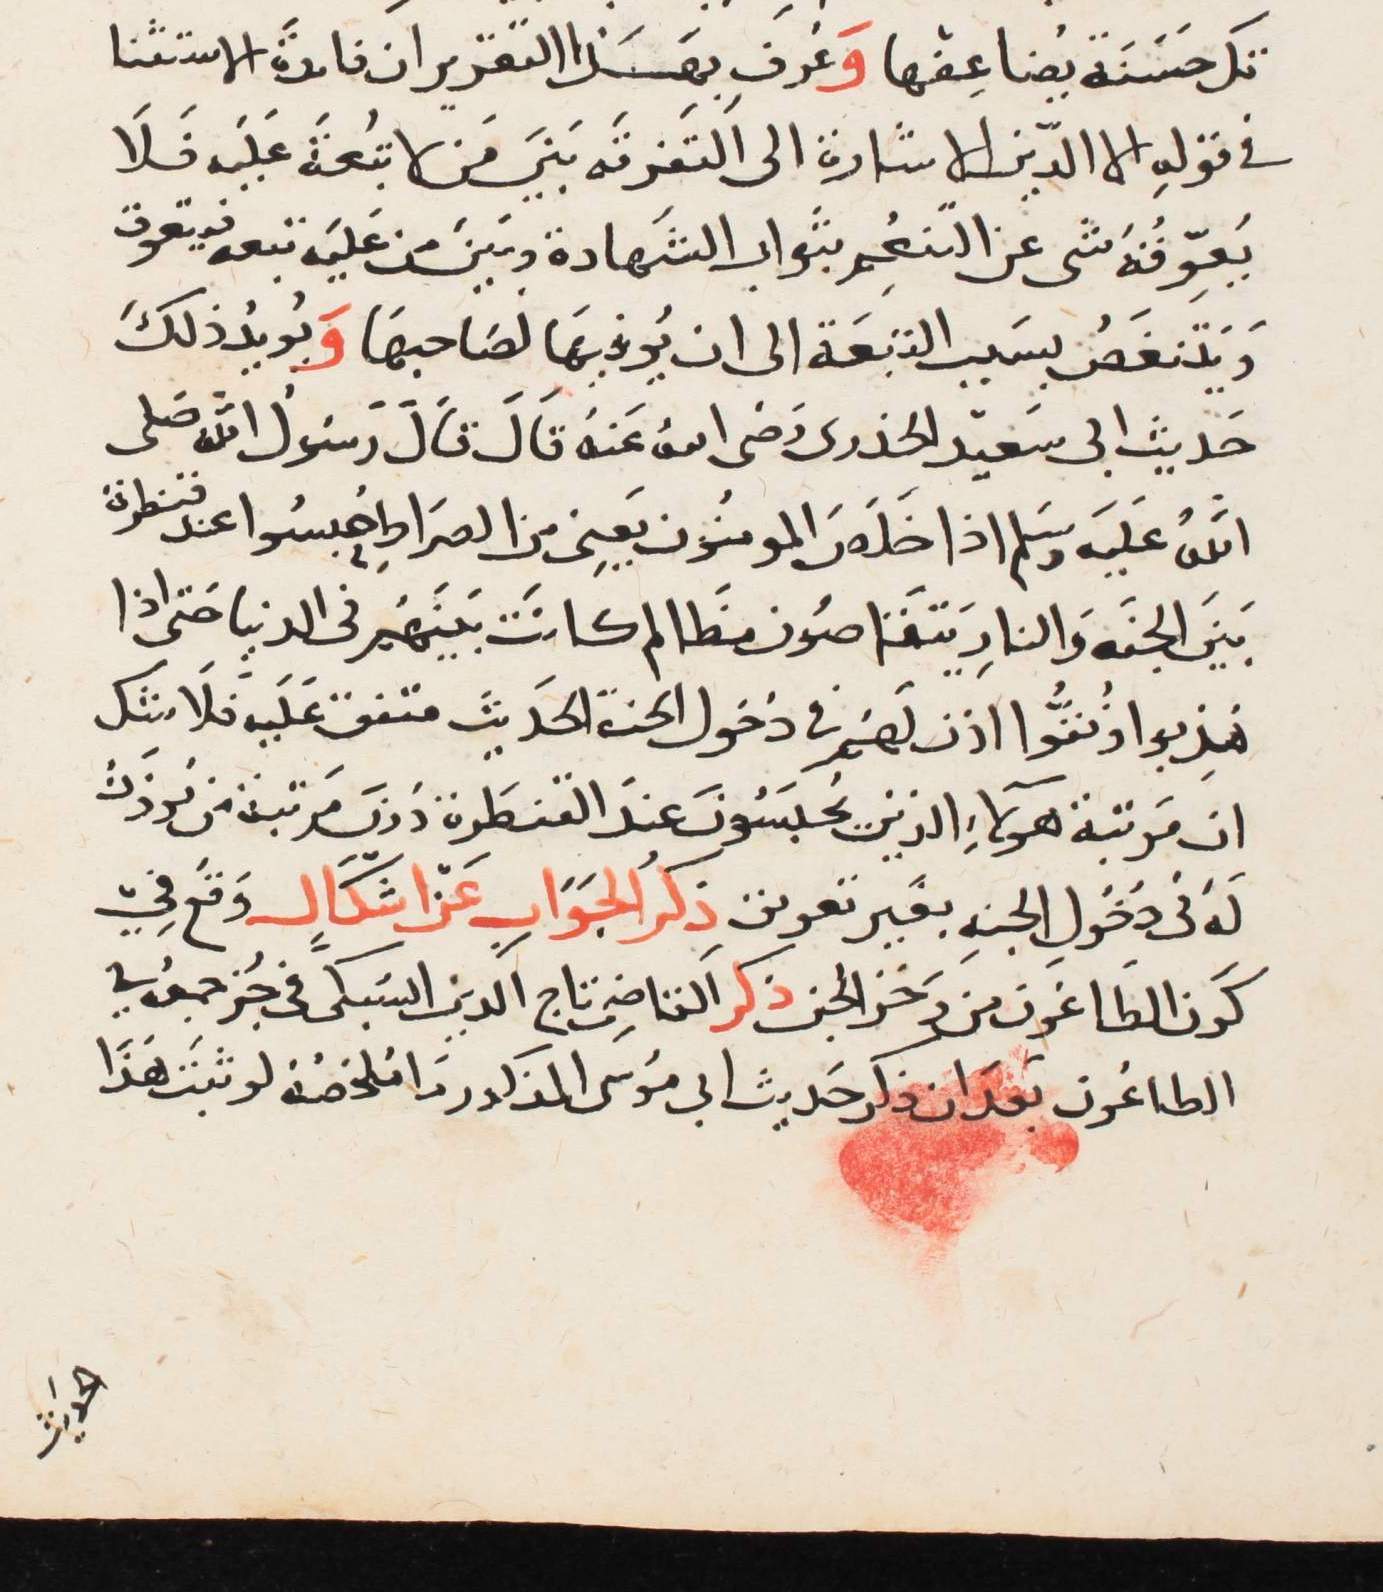 تك حَسَنَة يُضَاعِفها وَعُرِفَ بِهَذا التقرير ان فايدَة الاستثنا
في قولِهِ الا الدّين الاشارة الى التَفرقَه بَيَن مَن لا تبعَة عَلَيه فَلَا
يَعوِّقُهُ شى عن التنعُم بثَوابِ الشَهادة وبَيَن من عَليَه تبعه فيتعوق
وَيَتنغَصُ بسَبب التبَعَة الى ان يُوفيهَا لصَاحبهَا وَيُويدُ ذلكَ
حَديث ابى سَعيد الخدرى رَضى الله عَنهُ قَالَ قَالَ رَسُولُ اللَّه صَلى
اللَّهُ عَلَيَه وسَلم اذا خَلَصَ المومنُون يَعني من الصرَاطِ حُبِسُوا عند قنطرة
بَينَ الجنَه وَالنارِ يَتَقَاصوُن مظَالم كانَت بَينَهُم فى الدنيا حَتى اذا
هُذِبوا ونُقُّوا اذن لَهُم في دخول الجنة الحَديث متفق عَلَيه فَلَا شك
ان مَرتبة هَولآءِ الذين يُحبَسُونَ عندَ القنطَرة دُونَ مَرتبة من يُوذَن
لَهُ فى دُخُولِ الجنهِ بغَير تعويق ذِكرُ الجَوَاب عَنْ اشْكَالٍ وَقعَ فِي
كَون الطَاعُون من وَخز الجن ذكر القاضِى تاج الدين السبكى فى جُزء جمعهُ في
الطاعُون بَعدَ ان ذكر حَديث ابى موسَى المذكور مَا مُلخصُهُ لو ثبَت هَذَا
الحديث